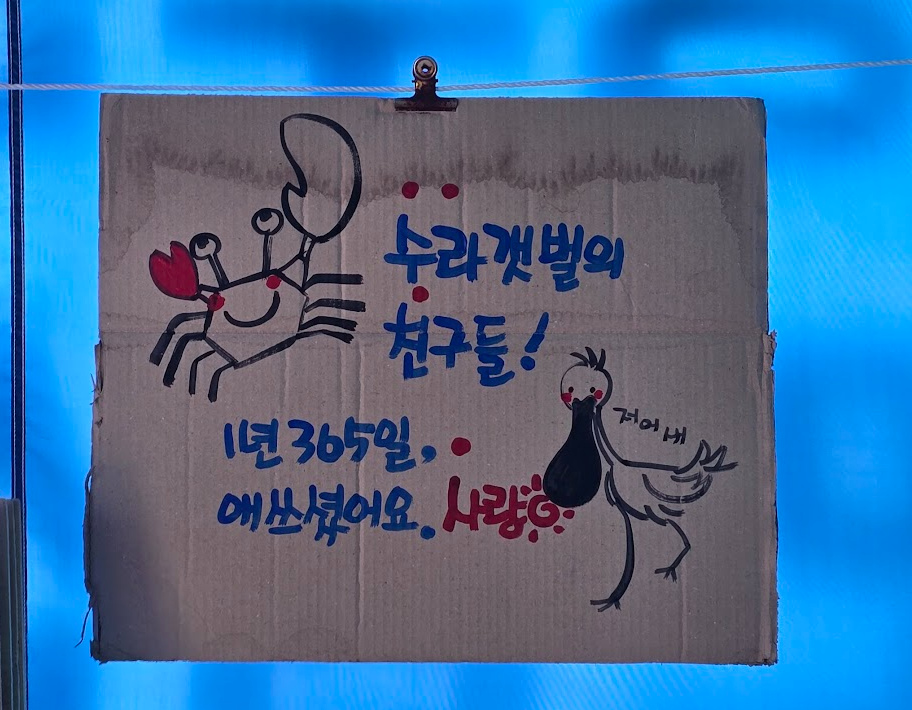 수라갯벌의
친구들!
저어새
1년 365일,
애쓰셨어요. 사랑